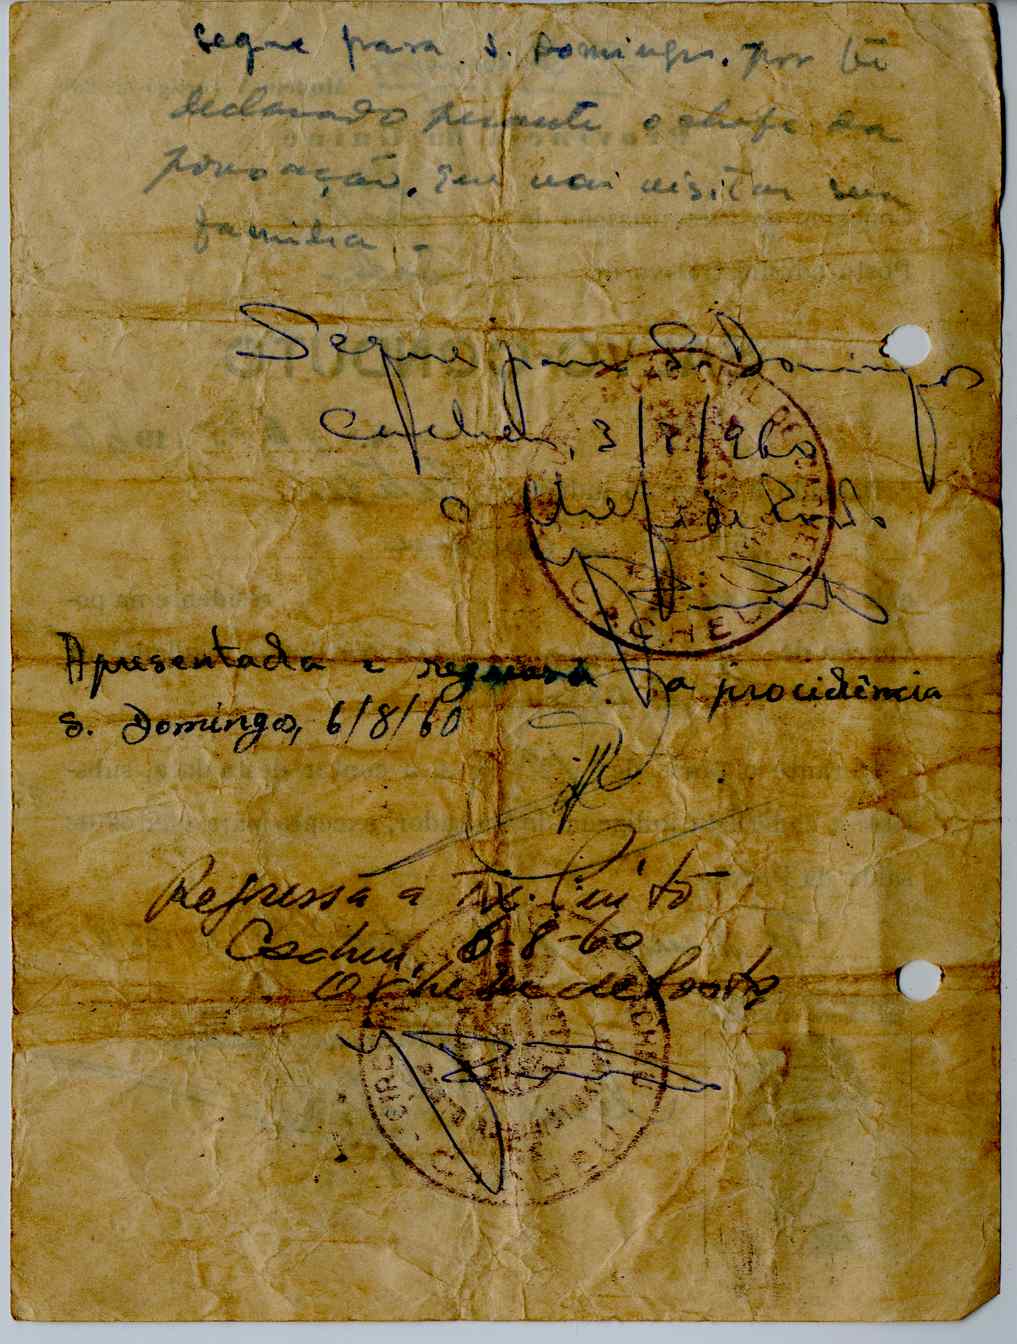 segue para S. Domingos, por ter
declarado perante o chefe da
povoação, que vai visitar sua
família. -
Segue para S. Domingos
Cacheu, 3/8/960
O Chefe de Posto
Apresentada e regressa a procidência
S. Domingos, 6/8/60
Regressa a Tx. Pinto
Cacheu, 6-8-60
O Chefe de Posto
CACHEU
CACHEU